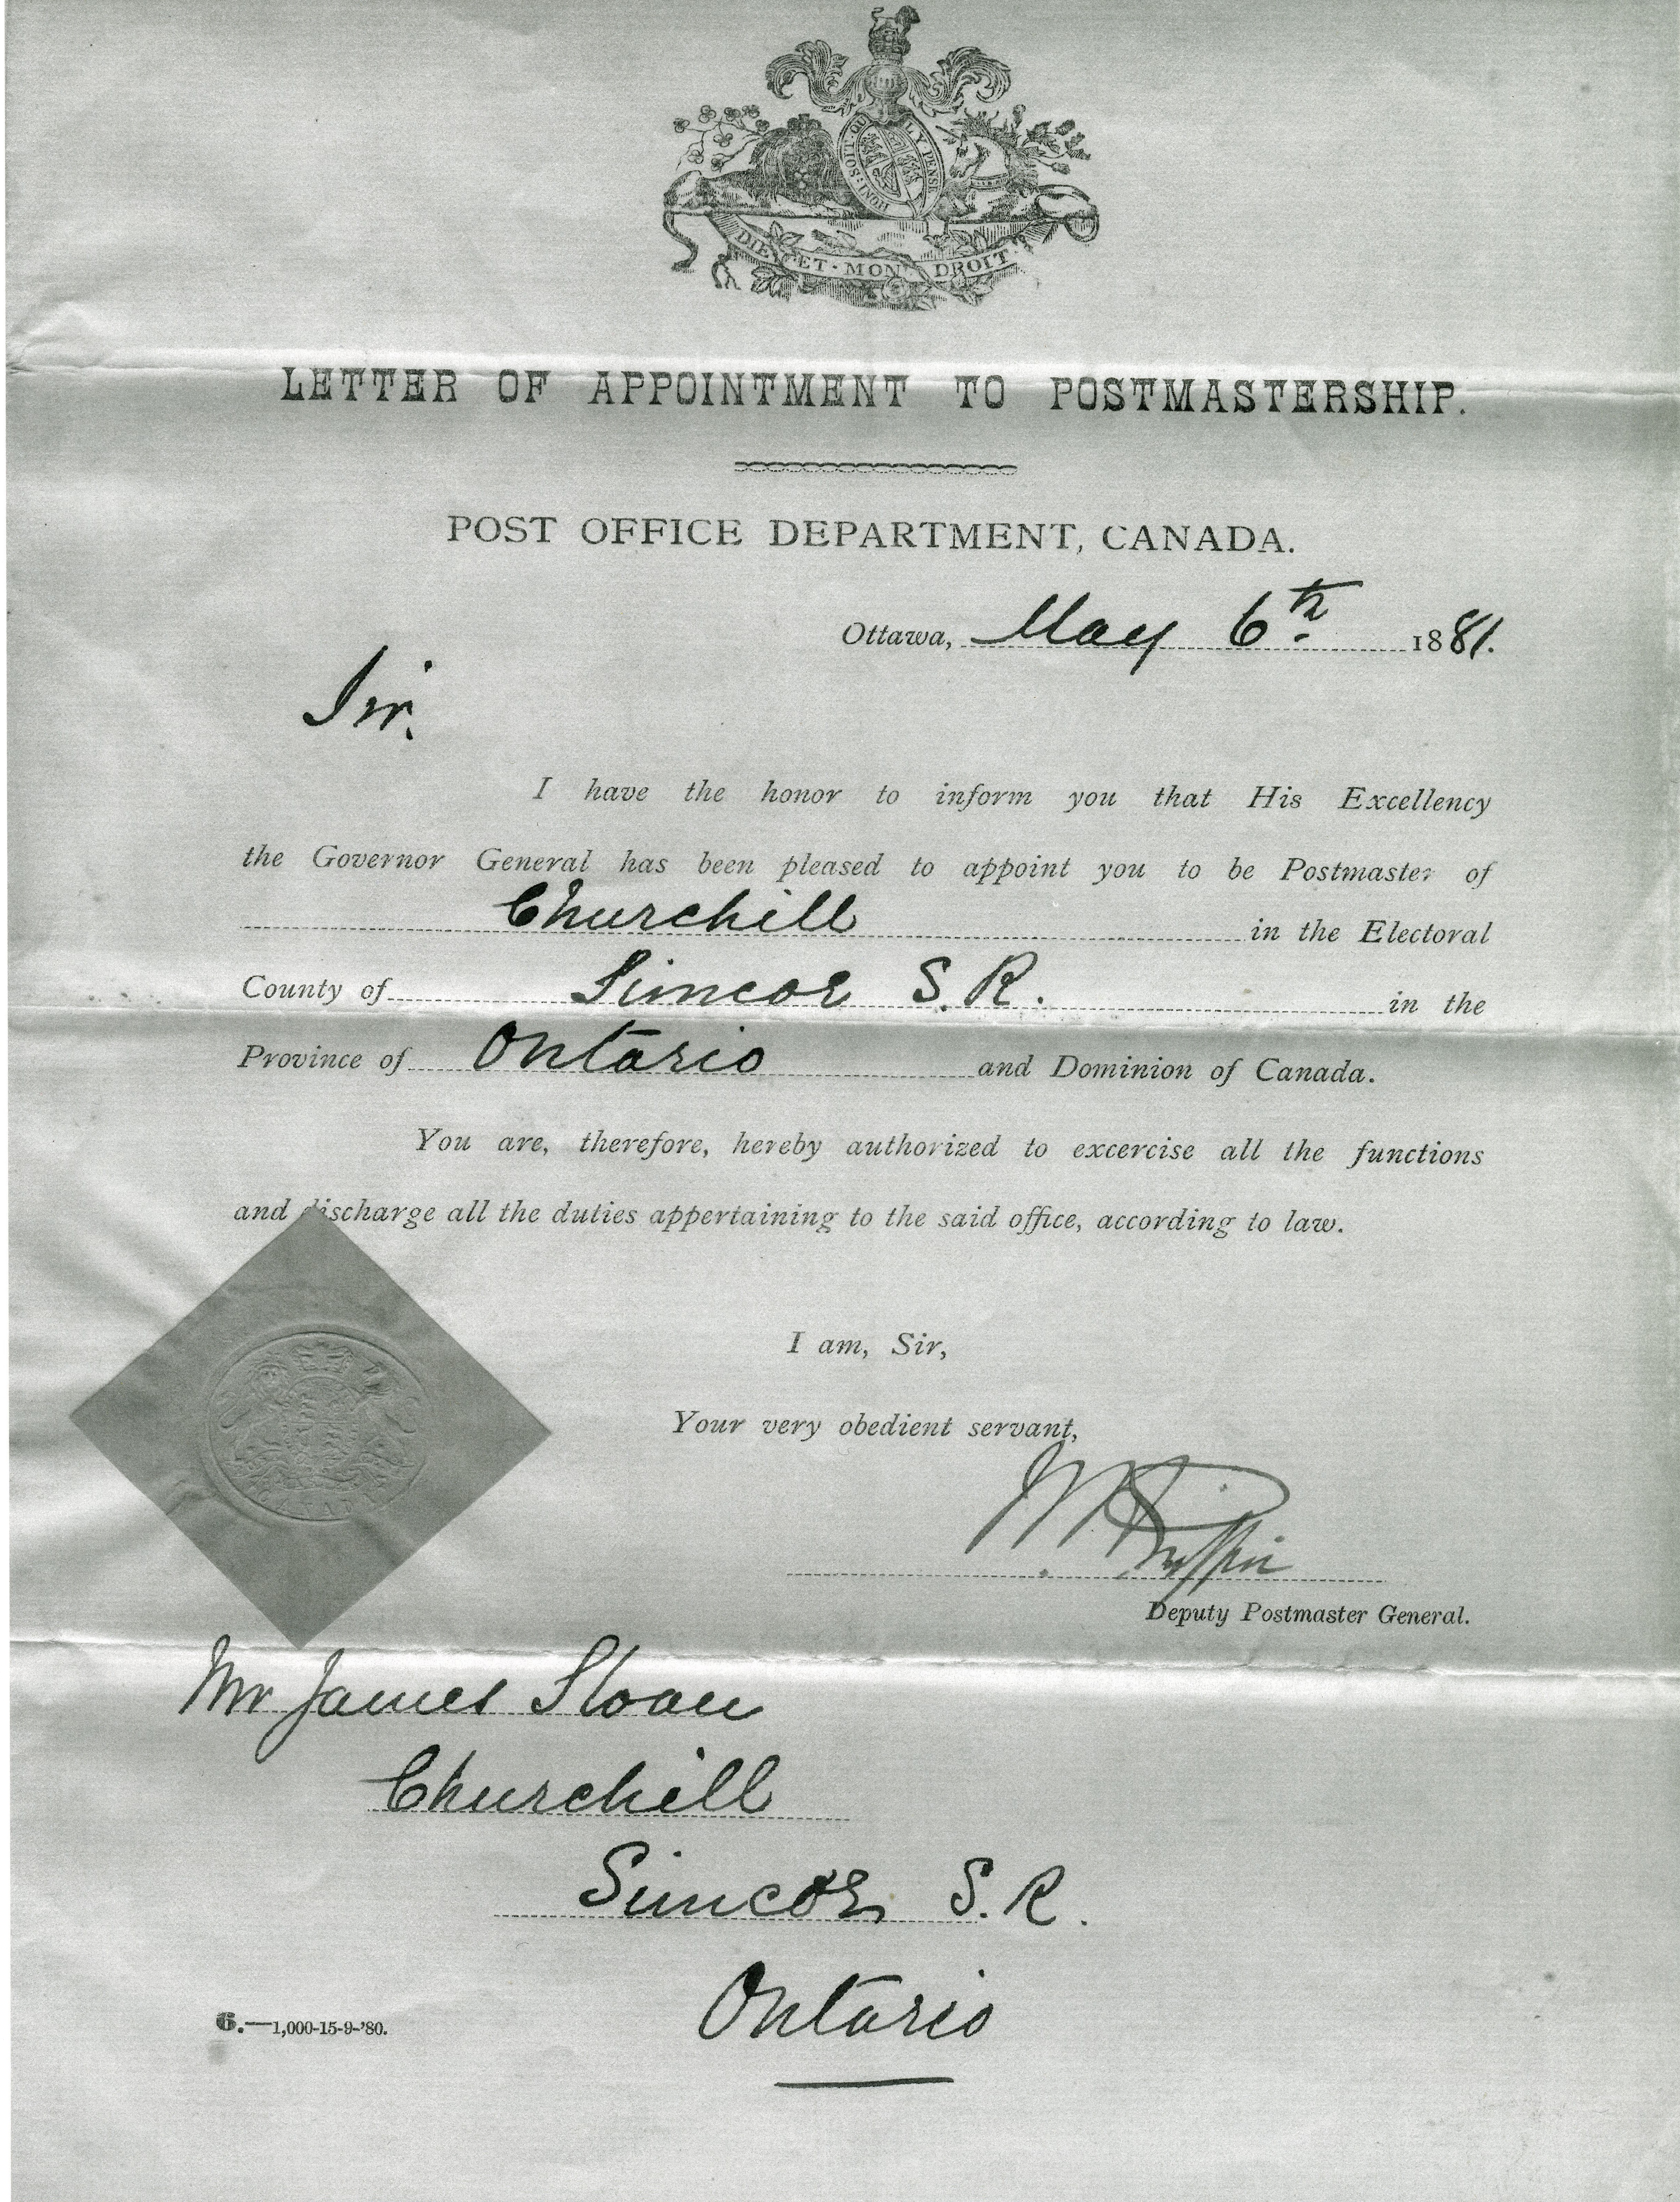 HONI·SOIT·QUI LY PENSE
DIEU·ET·MON DROIT
LETTER OF APPOINTMENT TO POSTMASTERSHIP.
POST OFFICE DEPARTMENT, CANADA.
Ottawa, May 6th. 1881.
Sir.
I have the honor to inform you that His Excellency
the Governor General has been pleased to appoint you to be Postmaster of
Churchill in the Electoral
County of Simcoe S. R. in the
Province of Ontario and Dominion of Canada.
You are, therefore, hereby authorized to excercise all the functions
and discharge all the duties appertaining to the said office, according to law.
CANADA
I am, Sir,
Your very obedient servant,
W H Griffin
Deputy Postmaster General.
Mr James Sloan
Churchill
Simcoe S. R.
Ontario
6.—1,000-15-9-'80.